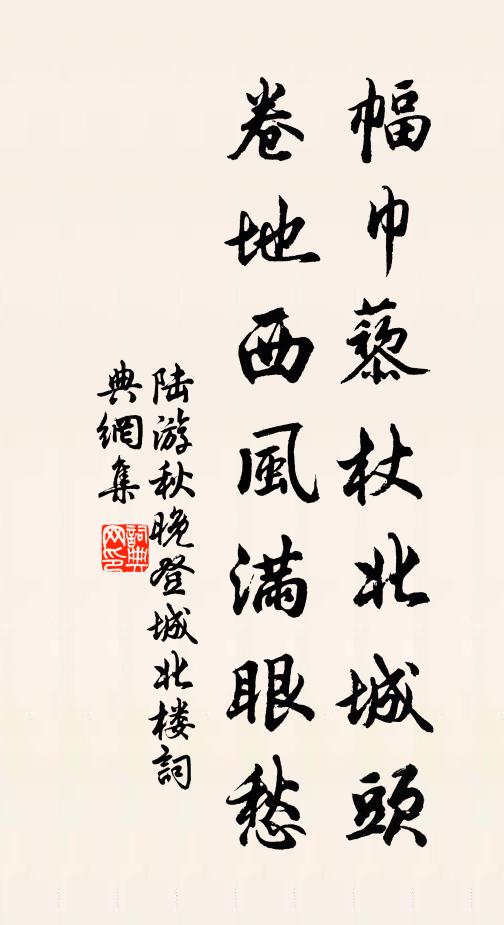 幅巾藜杖北城頭
卷地西風滿眼愁
陆游秋晚登城北楼詞
典網集
詞典
网印